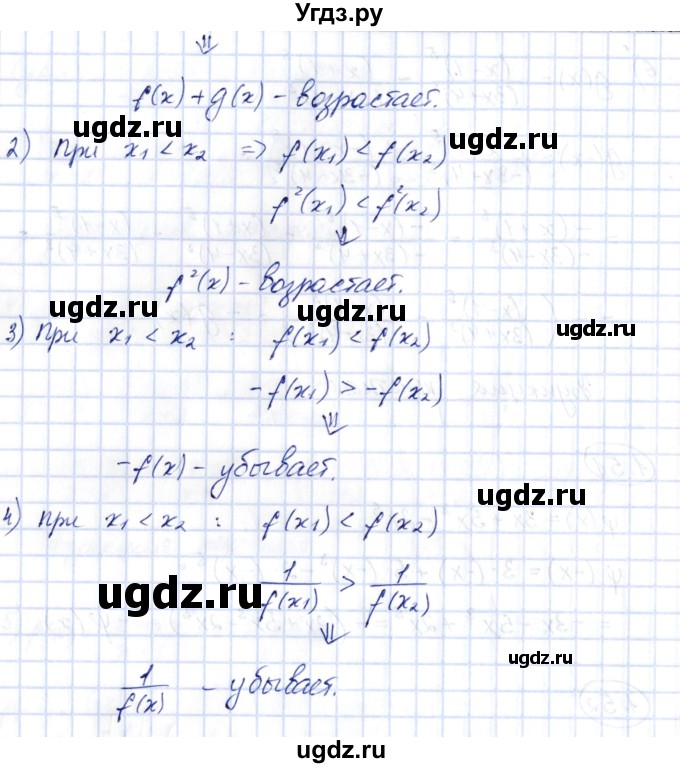 Угдз.ру
⇓
f(x)+g(x) - возрастает.
ugdz.ru
2) при x₁ < x₂ => f(x₁) < f(x₂)
ugdz.ru
f²(x₁) < f²(x₂)
⇓
f²(x) - возрастает.
ugdz.ru ugdz.ru ugdz.ru
3) при x₁ < x₂ : f(x₁) < f(x₂)
-f(x₁) > -f(x₂)
⇓
-f(x) - убывает.
ugdz.ru
4) при x₁ < x₂ : f(x₁) < f(x₂)
1/f(x₁) > 1/f(x₂)
ugdz.ru
⇓
ugdz.ru
1/f(x) - убывает.
ugdz.ru